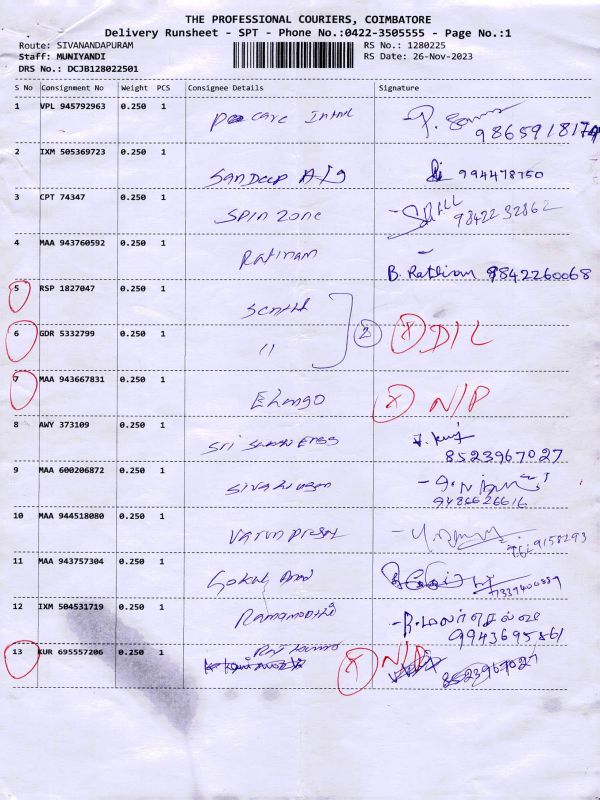 THE PROFESSIONAL COURIERS, COIMBATORE
Delivery Runsheet - SPT - Phone No.:0422-3505555 - Page No.:1
Route: SIVANANDAPURAM RS No.: 1280225
Staff: MUNIYANDI RS Date: 26-Nov-2023
DRS No.: DCJB128022501
S No Consignment No Weight PCS Consignee Details Signature
1 VPL 945792963 0.250 1 care
2 IXM 505369723 0.250 1 Sandeep
3 CPT 74347 0.250 1 Spin Zone
9842232862
4 MAA 943760592 0.250 1 Ratinam
B. 9842260068
5 RSP 1827047 0.250 1
6 GDR 5332799 0.250 1 11 2 X D/L
7 MAA 943667831 0.250 1 Elango X N/P
8 AWY 373109 0.250 1 Sri
8523967027
9 MAA 600206872 0.250 1
9486626616
10 MAA 944518080 0.250 1 Varun
11 MAA 943757304 0.250 1 Gokul
12 IXM 504531719 0.250 1 Ramamoorthi
9943695861
13 KUR 695557206 0.250 1 X N/P
8523967027